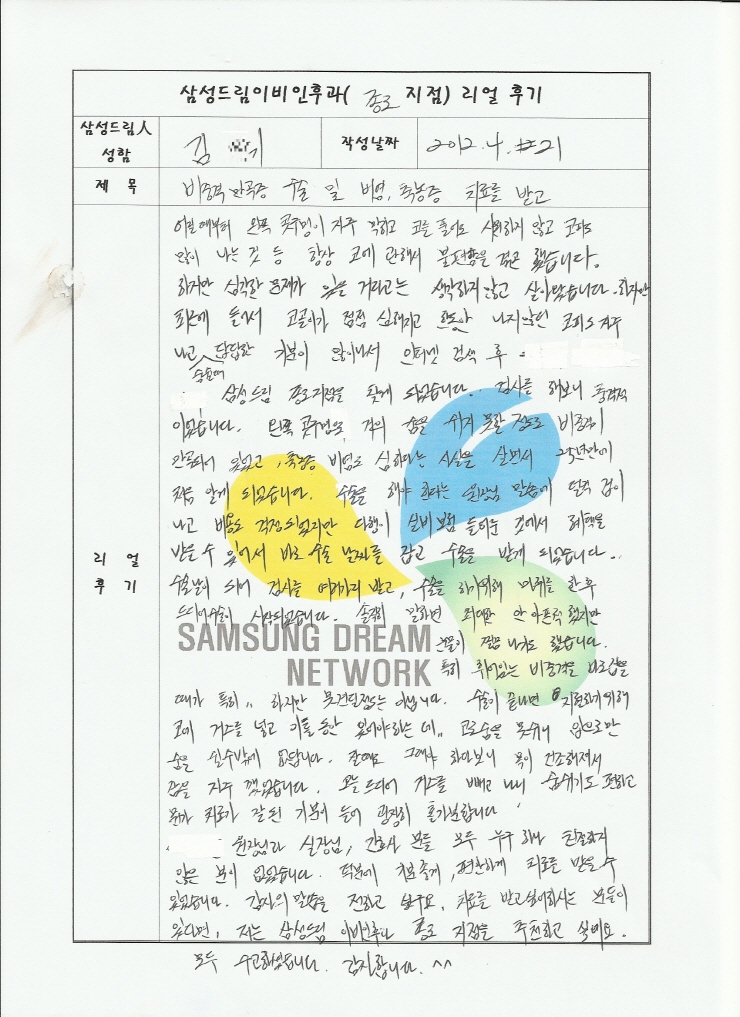 삼성드림이비인후과( 종로 지점) 리얼 후기
삼성드림人
성함
김
작성날짜
2012. 4. 21
제 목
비중격 만곡증 수술 및 비염, 축농증 치료를 받고
어릴때부터 왼쪽 콧구멍이 자주 막히고 코를 풀어도 시원하지 않고 코피도
많이 나는 것 등 항상 코에 관해서 불편함을 겪곤 했습니다.
하지만 심각한 문제가 있을 거라고는 생각하지 않고 살아왔습니다. 하지만
최근에 들어서 코골이가 점점 심해지고 한동안 나지않던 코피도 자주
나고 답답한 기분이 많이나서 인터넷 검색 후
수술전에
삼성드림 종로지점을 찾게 되었습니다.. 검사를 해보니 충격적
이었습니다. 왼쪽 콧구멍으로 거의 숨을 쉬지 못할 정도로 비중격이
만곡되어 있었고, 축농증 비염도 심하다는 사실을 살면서 25년만에
처음 알게 되었습니다. 수술을 해야 한다는 원장님 말씀에 덜컥 겁이
나고 비용도 걱정되었지만 다행히 실비보험 들어둔 것에서 혜택을
받을 수 있어서 바로 수술 날짜를 잡고 수술을 받게 되었습니다..
리 얼
후 기
수술날이 되어 검사를 여러가지 받고, 수술을 하기위해 마취를 한 후
드디어 수술이 시작되었습니다. 솔직히 말하면 최대한 안 아프게 했지만
눈물이 찔끔 나기도 했습니다.
SAMSUNG DREAM
NETWORK
특히 휘어있는 비중격을 바로잡을
때가 특히.. 하지만 못견딜정도는 아닙니다. 수술이 끝나면 지혈하기위해
코에 거즈를 넣고 이틀 동안 있어야하는데.. 코로 숨을 못쉬니 입으로만
숨을 쉴수밖에 없답니다. 잘때도 그래야 하다보니 목이 건조해져서
잠을 자주 깼었습니다. 오늘 드디어 거즈를 빼고 나니 숨쉬기도 편하고
뭔가 치료가 잘 된 기분이 들어 굉장히 홀가분합니다
원장님과 실장님, 간호사 분들 모두 누구 하나 친절하지
않은 분이 없었습니다. 덕분에 기분좋게, 편안하게 치료를 받을 수
있었습니다. 감사의 말씀을 전하고 싶구요, 치료를 받고싶어하시는 분들이
있다면, 저는 삼성드림 이비인후과 종로 지점을 추천하고 싶네요.
모두 수고하셨습니다. 감사합니다. ^^